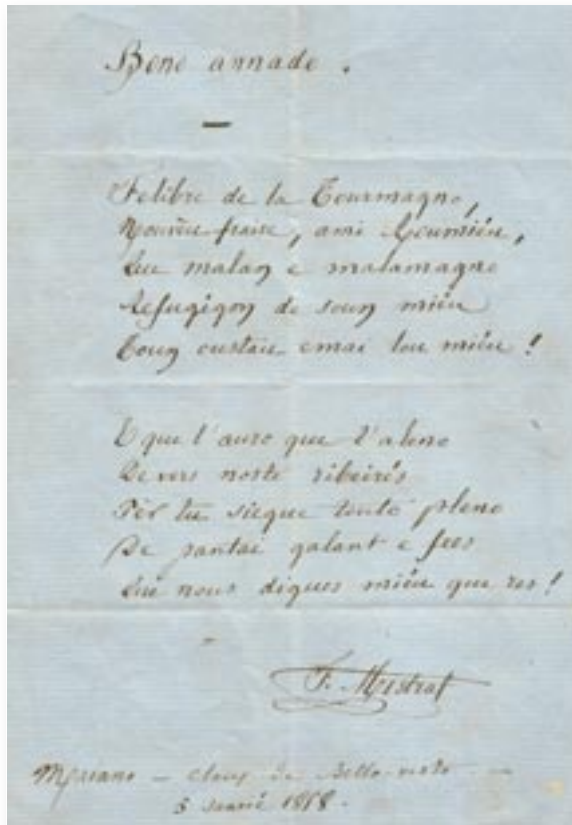 Bono annado.
Felibre de la Tourmagno,
Nouvèu fraire, ami
Que malan e malamagno
de soun
Toun oustau emai lou miéu !
E que l'auro que t'aleno
De vers noste ribeirés
Pèr tu siegue touto pleno
De pantai galant e fres
Que nous digues miéu que res !
F. Mistral
Maiano — Clous de Bello-visto —
5